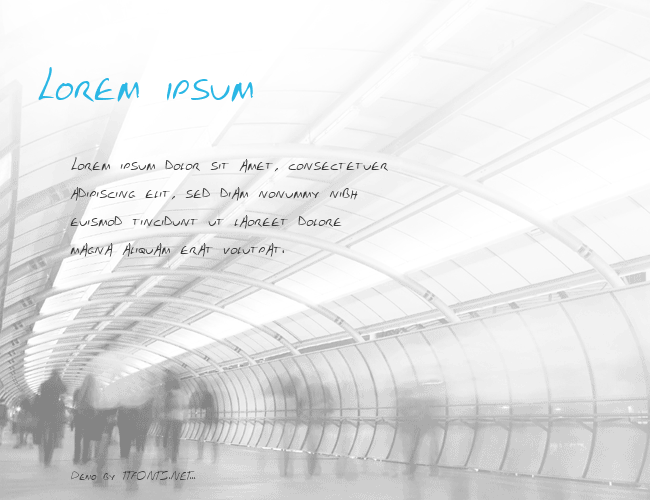 LOREM IPSUM
LOREM IPSUM DOLOR SIT AMET, CONSECTETUER
ADIPISCING ELIT, SED DIAM NONUMMY NIBH
EUISMOD TINCIDUNT UT LAOREET DOLORE
MAGNA ALIQUAM ERAT VOLUTPAT.
DEMO BY TTFONTS.NET...